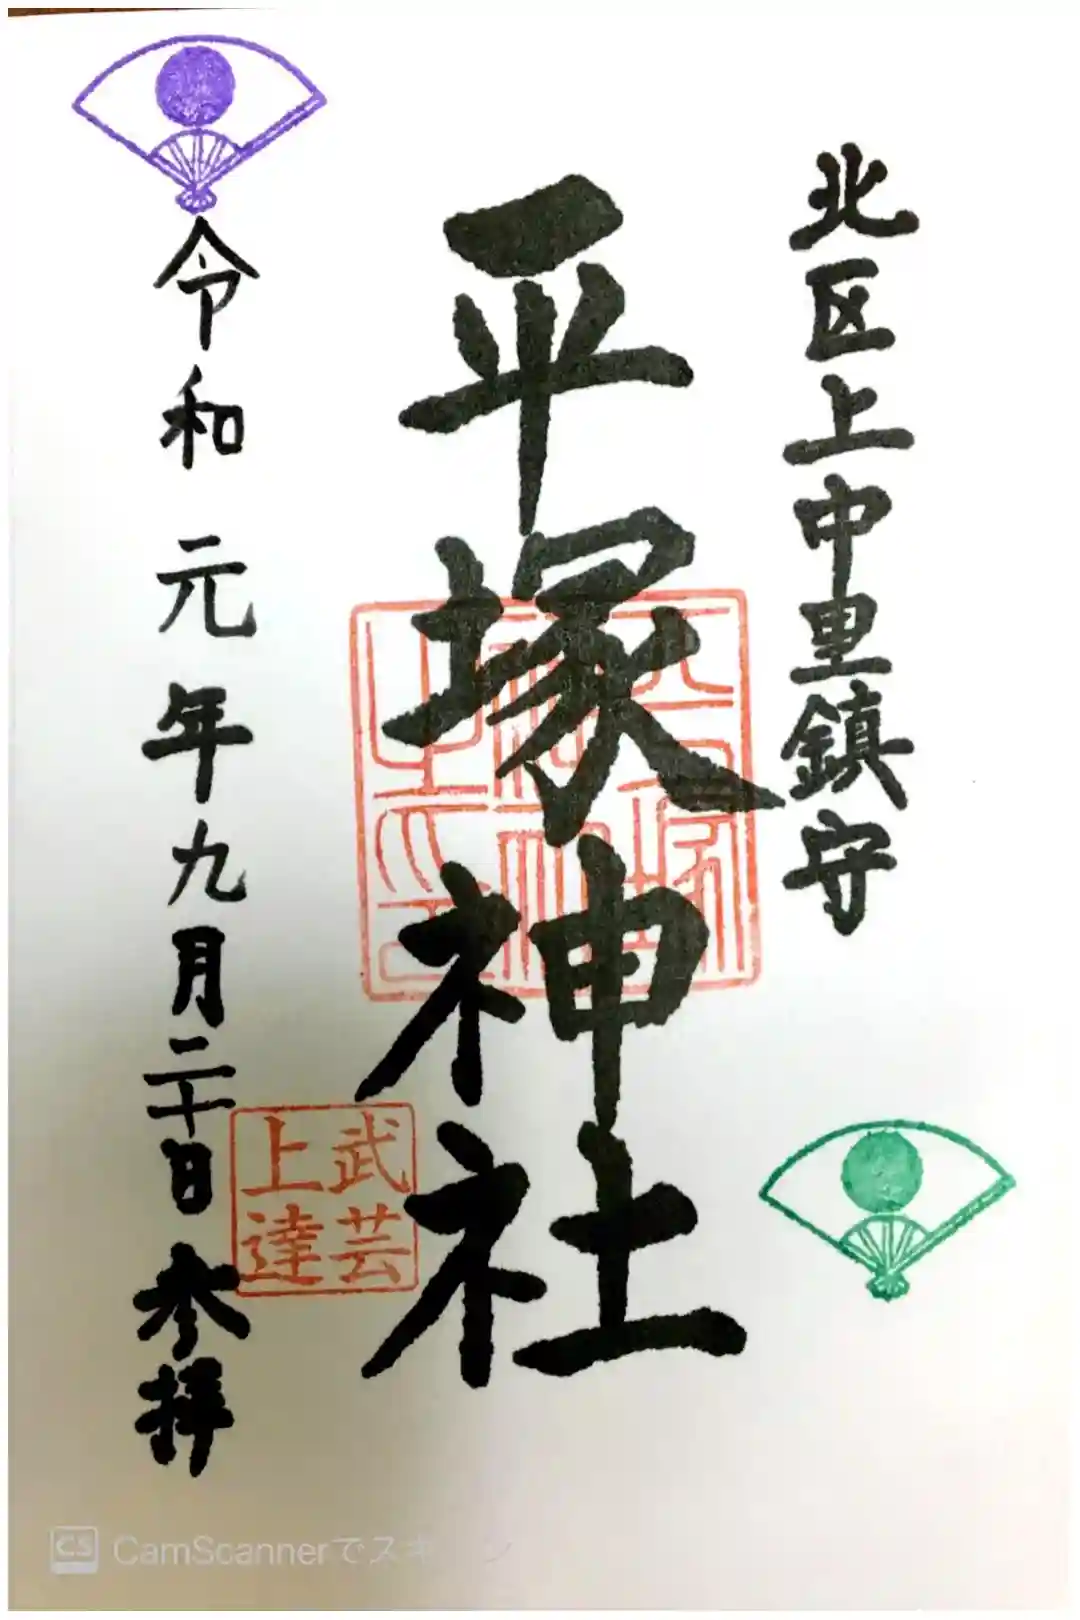 北区上中里鎮守
平塚神社
武芸
上達
令和元年九月二十日参拝
CS CamScannerでスキ